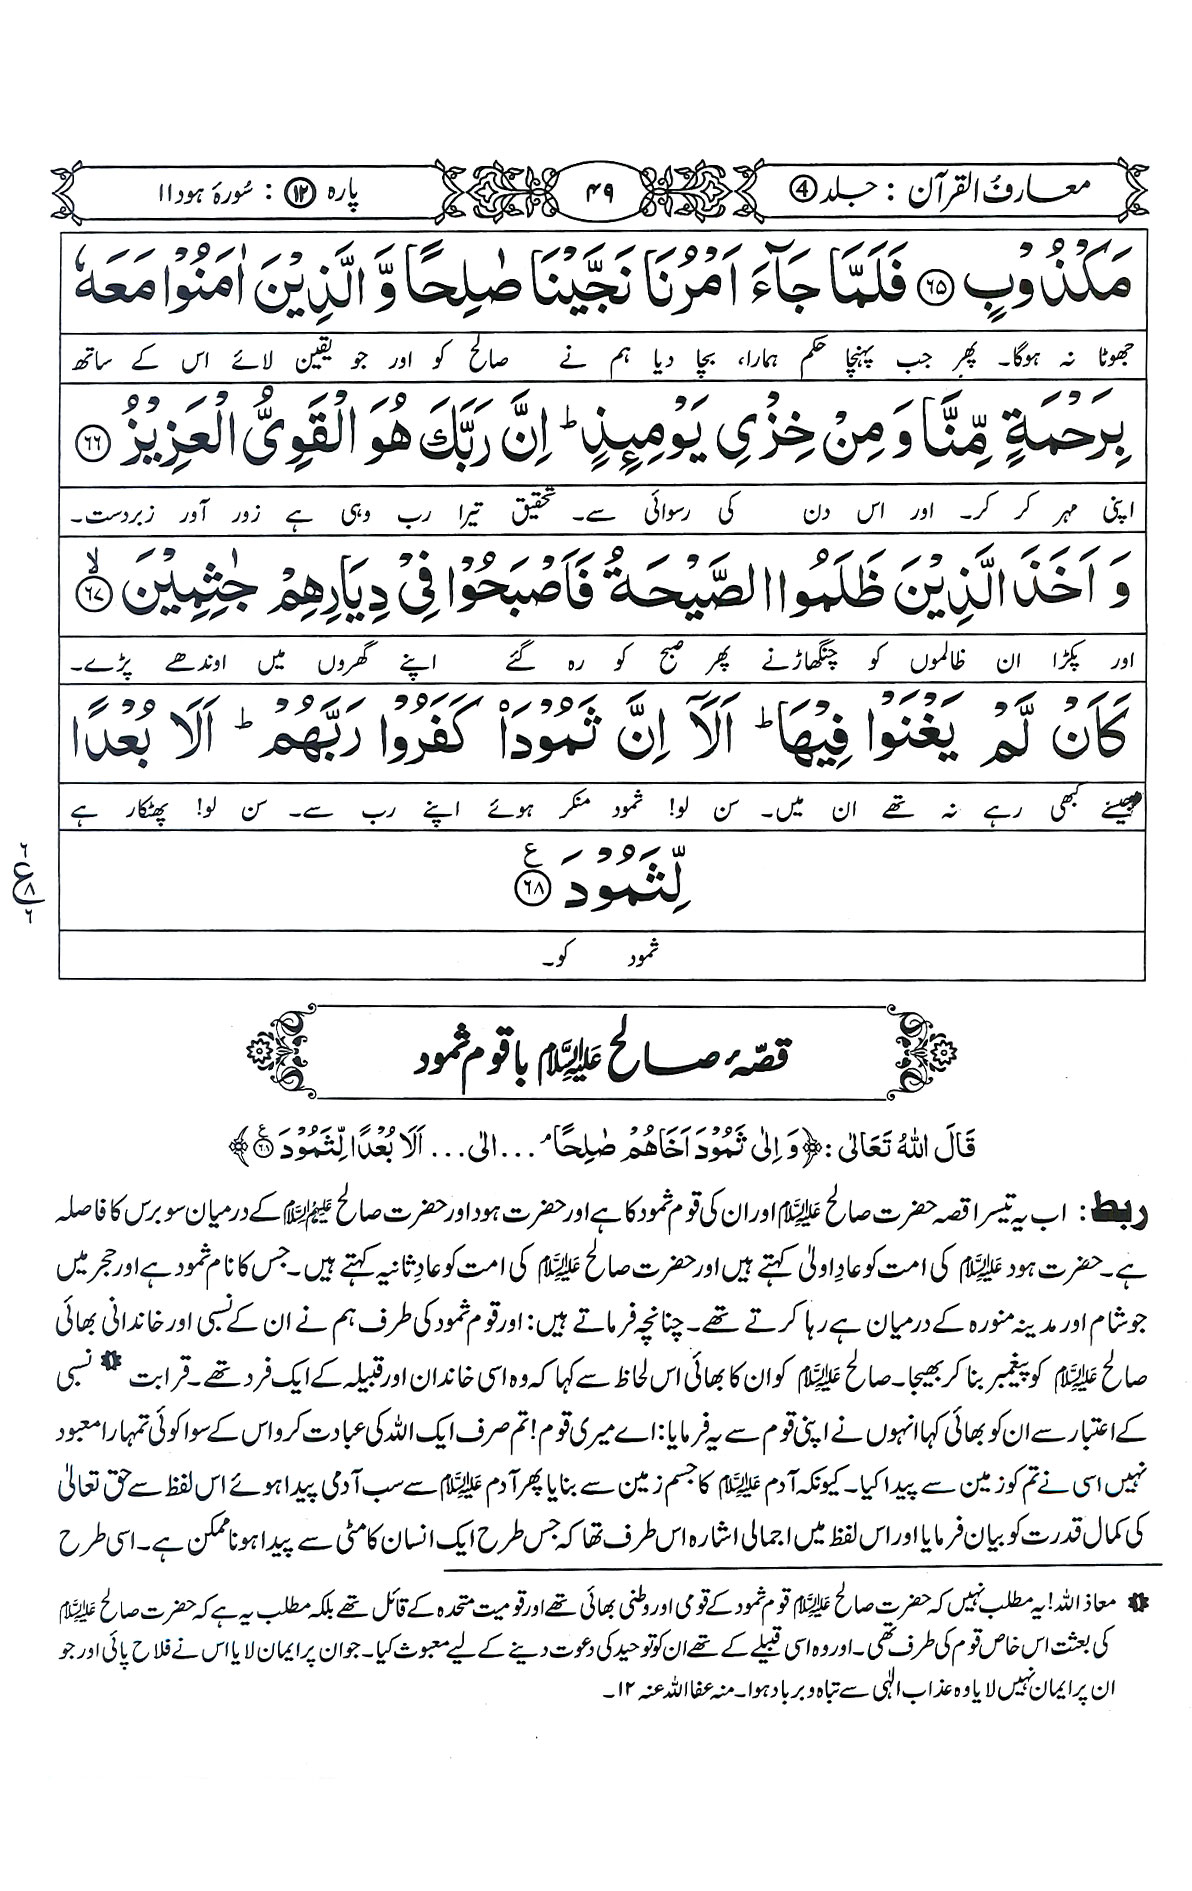 معارف القرآن : جلد ④ ۴۹ پارہ ⑫ : سُورۂ ہود ۱۱
مَكْذُوْبٍ ﴿۶۵﴾ فَلَمَّا جَآءَ اَمْرُنَا نَجَّيْنَا صٰلِحًا وَّ الَّذِيْنَ اٰمَنُوْا مَعَهٗ
جھوٹا نہ ہوگا۔ پھر جب پہنچا حکم ہمارا، بچا دیا ہم نے صالح کو اور جو یقین لائے اس کے ساتھ
بِرَحْمَةٍ مِّنَّا وَ مِنْ خِزْيِ يَوْمِئِذٍ ؕ اِنَّ رَبَّكَ هُوَ الْقَوِيُّ الْعَزِيْزُ ﴿۶۶﴾
اپنی مہر کر کر۔ اور اس دن کی رسوائی سے۔ تحقیق تیرا رب وہی ہے زور آور زبردست۔
وَ اَخَذَ الَّذِيْنَ ظَلَمُوا الصَّيْحَةُ فَاَصْبَحُوْا فِيْ دِيَارِهِمْ جٰثِمِيْنَ ﴿۶۷﴾ ۙ
اور پکڑا ان ظالموں کو چنگھاڑنے پھر صبح کو رہ گئے اپنے گھروں میں اوندھے پڑے۔
كَاَنْ لَّمْ يَغْنَوْا فِيْهَا ؕ اَلَاۤ اِنَّ ثَمُوْدَاۡ كَفَرُوْا رَبَّهُمْ ؕ اَلَا بُعْدًا
جیسے کبھی رہے نہ تھے ان میں۔ سن لو! ثمود منکر ہوئے اپنے رب سے۔ سن لو! پھٹکار ہے
لِّثَمُوْدَ ﴿۶۸﴾ ع
۶ ع ۸ ۶
ثمود کو۔
قصّۂ صالح علیہ السلام با قوم ثمود
قَالَ اللهُ تَعَالٰى : ﴿وَ اِلٰى ثَمُوْدَ اَخَاهُمْ صٰلِحًا ۘ ... الٰى ... اَلَا بُعْدًا لِّثَمُوْدَ ۶۸ ع﴾
ربط: اب یہ تیسرا قصہ حضرت صالح علیہ السلام اور ان کی قوم ثمود کا ہے اور حضرت ہود اور حضرت صالح علیہما السلام کے درمیان سو برس کا فاصلہ
ہے۔ حضرت ہود علیہ السلام کی امت کو عادِ اولیٰ کہتے ہیں اور حضرت صالح علیہ السلام کی امت کو عادِ ثانیہ کہتے ہیں۔ جس کا نام ثمود ہے اور حجر میں
جو شام اور مدینہ منورہ کے درمیان ہے رہا کرتے تھے۔ چنانچہ فرماتے ہیں: اور قوم ثمود کی طرف ہم نے ان کے نسبی اور خاندانی بھائی
صالح علیہ السلام کو پیغمبر بنا کر بھیجا۔ صالح علیہ السلام کو ان کا بھائی اس لحاظ سے کہا کہ وہ اسی خاندان اور قبیلہ کے ایک فرد تھے۔ قرابت ❶ نسبی
کے اعتبار سے ان کو بھائی کہا انہوں نے اپنی قوم سے یہ فرمایا: اے میری قوم! تم صرف ایک اللہ کی عبادت کرو اس کے سوا کوئی تمہارا معبود
نہیں اسی نے تم کو زمین سے پیدا کیا۔ کیونکہ آدم علیہ السلام کا جسم زمین سے بنایا پھر آدم علیہ السلام سے سب آدمی پیدا ہوئے اس لفظ سے حق تعالیٰ
کی کمال قدرت کو بیان فرمایا اور اس لفظ میں اجمالی اشارہ اس طرف تھا کہ جس طرح ایک انسان کا مٹی سے پیدا ہونا ممکن ہے۔ اسی طرح
❶ معاذ اللہ! یہ مطلب نہیں کہ حضرت صالح علیہ السلام قوم ثمود کے قومی اور وطنی بھائی تھے اور قومیت متحدہ کے قائل تھے بلکہ مطلب یہ ہے کہ حضرت صالح علیہ السلام
کی بعثت اس خاص قوم کی طرف تھی۔ اور وہ اسی قبیلے کے تھے ان کو توحید کی دعوت دینے کے لیے مبعوث کیا۔ جو ان پر ایمان لایا اس نے فلاح پائی اور جو
ان پر ایمان نہیں لایا وہ عذاب الٰہی سے تباہ و برباد ہوا۔ منہ عفا اللہ عنہ ۱۲۔